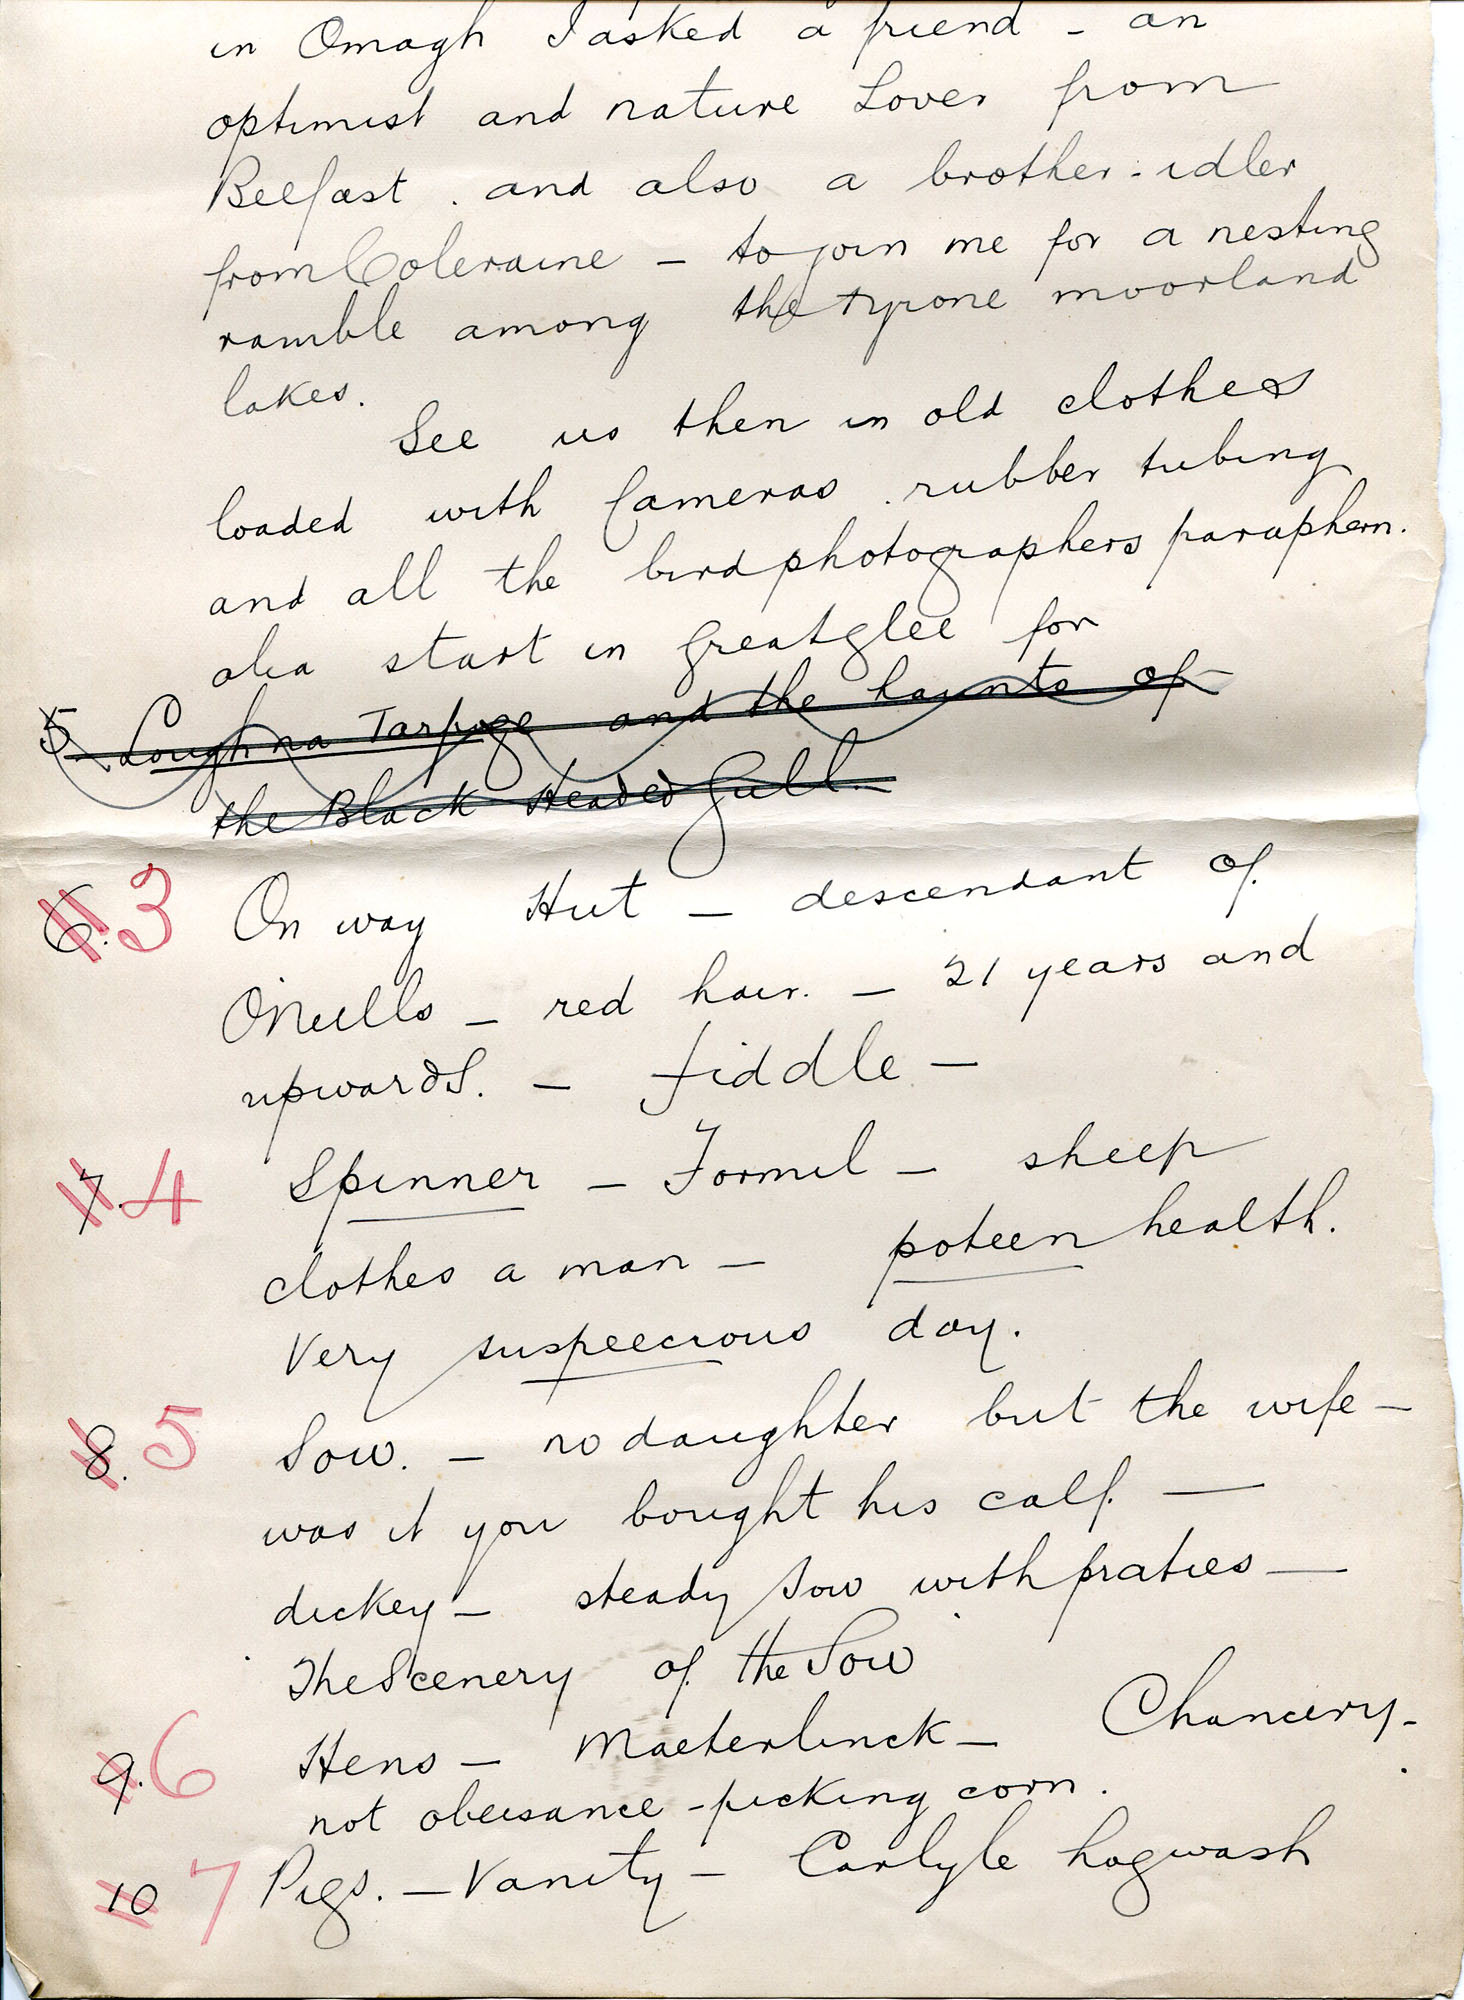 in Omagh I asked a friend - an
optimist and nature Lover from
Belfast . and also a brother-idler
from Coleraine - to join me for a nesting
ramble among the tyrone moorland
lakes.
See us then in old clothes
loaded with Cameras . rubber tubing
and all the birdphotographers paraphern.
alia start in great glee for
5 Lough na Tarpoge and the haunts of
the Black Headed Gull.
6. 3 On way Hut - descendant of
O'Neills - red hair. - 21 years and
upwards. - fiddle -
7. 4 Spinner - Formil - sheep
clothes a man - poteen health.
Very suspeecious day.
8. 5 Sow. - no daughter but the wife -
was it you bought his calf. -
dickey - steady sow with praties -
The Scenery of the Sow
9. 6 Hens - Maeterlinck - Chancery -
not obeisance - picking corn.
10 7 Pigs. - Vanity - Carlyle hogwash